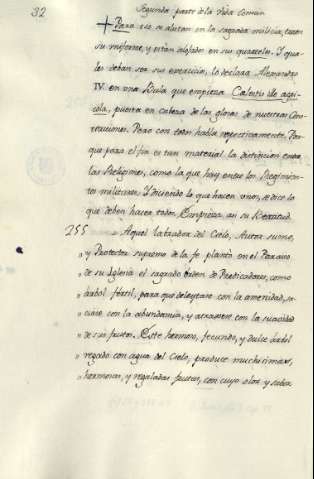 32
Segunda parte de la Vida Comun
Para eso se alistan en la sagrada milicia, tienen
su uniforme, y estan alojados en sus quarteles. Y qua-
les deban ser sus exercicios, lo declara Alexandro
IV. en una Bula que empieza Caelestis ille agri-
cola, puesta en cabeza de las glosas de nuestras Cons-
tituciones. Pero con todos habla respectivamente. Por-
que para el fin es tan material la distincion entre
las Religiones, como la que hay entre los Regimien-
tos militares. Y diciendo lo que hacen unos, se dice lo
que deben hacer todos. Empieza asi su Beatitud.
255 Aquel labrador del Cielo, Autor sumo,
„ y Protector supremo de la fe, planto en el Paraiso
„ de su Iglesia el sagrado Orden de Predicadores, como
„ árbol fértil, para que deleytase con la amenidad, sa-
„ ciase con la abundancia, y atraxese con la suavidad
„ de sus frutos. Este hermoso, fecundo, y dulce árbol
„ regado con agua del Cielo, produce muchisimos,
„ hermosos, y regalados frutos, con cuyo olor y sabor